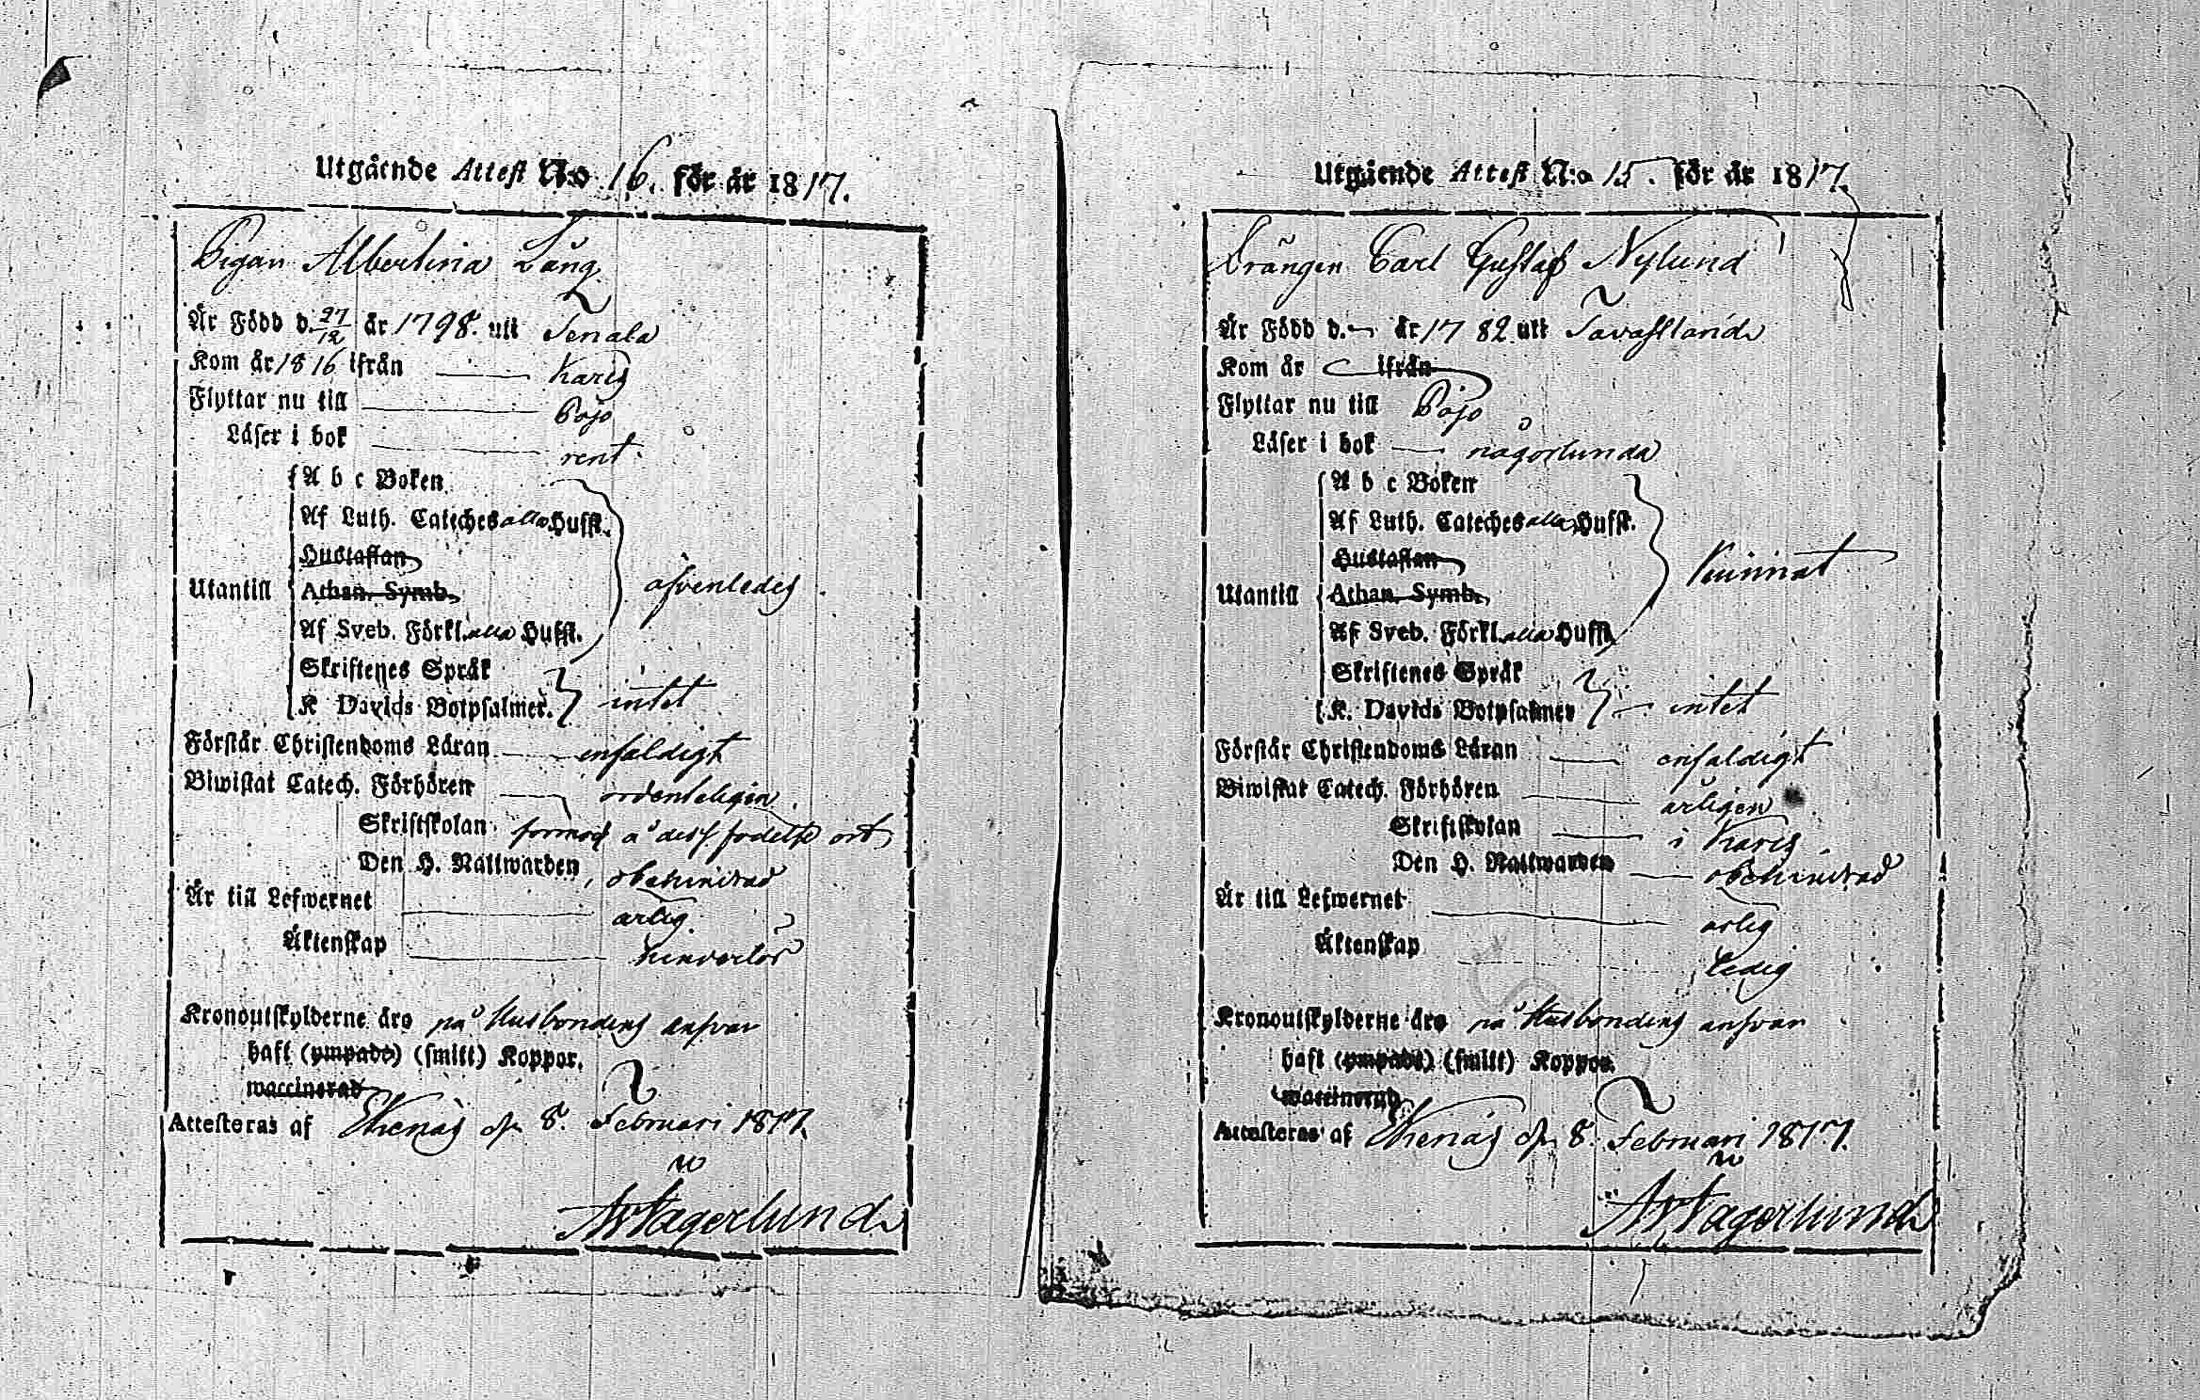 Utgående Attest N:o 16. för år 1817.
Pigan Albertina Lång
Är Född d. 27/12 år 1798. uti Tenala
Kom år 1816 ifrån Karis
Flyttar nu till Pojo
Läser i bok rent
A b c Boken
Af Luth. Cateches alla Hufst.
Hustaflan
Utantill Athan. Symb. äfvenledes
Af Sveb. Förkl. alla Hufst.
Skriftenes Språk
K Davids Botpsalmer. intet
Förstår Christendoms Läran enfaldigt
Biwistat Catech. Förhören ordenteligen
Skriftskolan förmodl å dess födelse ort
Den H. Nattwarden obehindrad
Är till Lefwernet ärlig.
Äktenskap hinderlös
Kronoutskylderne äro på Husbondens ansvar
haft (ympade) (smitt) Koppor.
waccinerad
Attesteras af Ekenäs d. 8. Februari 1817.
Fagerlund
Utgående Attest N:o 15. för år 1817.
Drängen Carl Gustaf Nylund
Är Född d. – år 1782 uti Tavastland
Kom år ifrån
Flyttar nu till Pojo
Läser i bok någorlunda
A b c Boken
Af Luth. Cateches alla Hufst.
Hustaflan
Utantill Athan. Symb. kunnat
Af Sveb. Förkl. alla Hufst.
Skriftenes Språk
K. Davids Botpsalmer intet
Förstår Christendoms Läran enfaldigt
Biwistat Catech. Förhören årligen
Skriftskolan i Karis
Den H. Nattwarden obehindrad
Är till Lefwernet ärlig
Äktenskap ledig
Kronoutskylderne äro på Husbondens ansvar
haft (ympade) (smitt) Koppor.
waccinerad
Attesteras af Ekenäs d. 8. Februari 1817.
Fagerlund